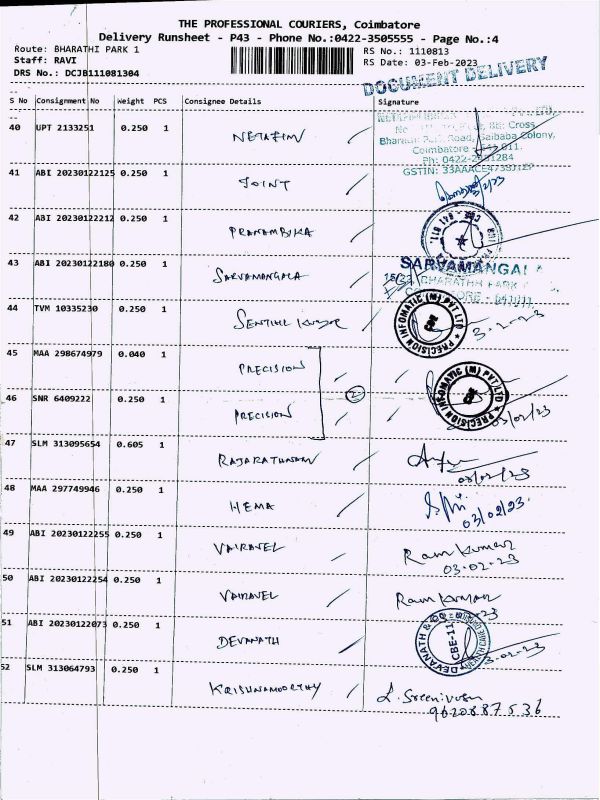 THE PROFESSIONAL COURIERS, Coimbatore
Delivery Runsheet - P43 - Phone No.:0422-3505555 - Page No.:4
Route: BHARATHI PARK 1 RS No.: 1110813
Staff: RAVI RS Date: 03-Feb-2023
DRS No.: DCJB111081304
DOCUMENT DELIVERY
S No Consignment No Weight PCS Consignee Details Signature
40 UPT 2133251 0.250 1 NETAFIM
Cross
Road, Saibaba Colony,
Coimbatore
Ph: 0422-
GSTIN:
41 ABI 20230122125 0.250 1 JOINT
42 ABI 20230122212 0.250 1 PRANAMBIKA
43 ABI 20230122180 0.250 1 SARVAMANGALA
SARVAMANGAL
BHARATHI PARK
44 TVM 10335230 0.250 1 SENTHIL KUMAR 3-2-2023
PRECISION INFOMATIC (M) PVT LTD
45 MAA 298674979 0.040 1 PRECISION
2
PRECISION INFOMATIC (M) PVT LTD
46 SNR 6409222 0.250 1 PRECISION 03/02/23
47 SLM 313095654 0.605 1 RAJARATHNAM
03/02/23
48 MAA 297749946 0.250 1 HEMA
03/02/23
49 ABI 20230122255 0.250 1 VAIRAVEL Ram Kumar
03-02-23
50 ABI 20230122254 0.250 1 VAIRAVEL Ram Kumar
51 ABI 20230122073 0.250 1 DEVANATH
DEVANATH & CO
CBE-11
3-02-23
52 SLM 313064793 0.250 1 KRISHNAMOORTHY L. Sreenivasan
9620887536